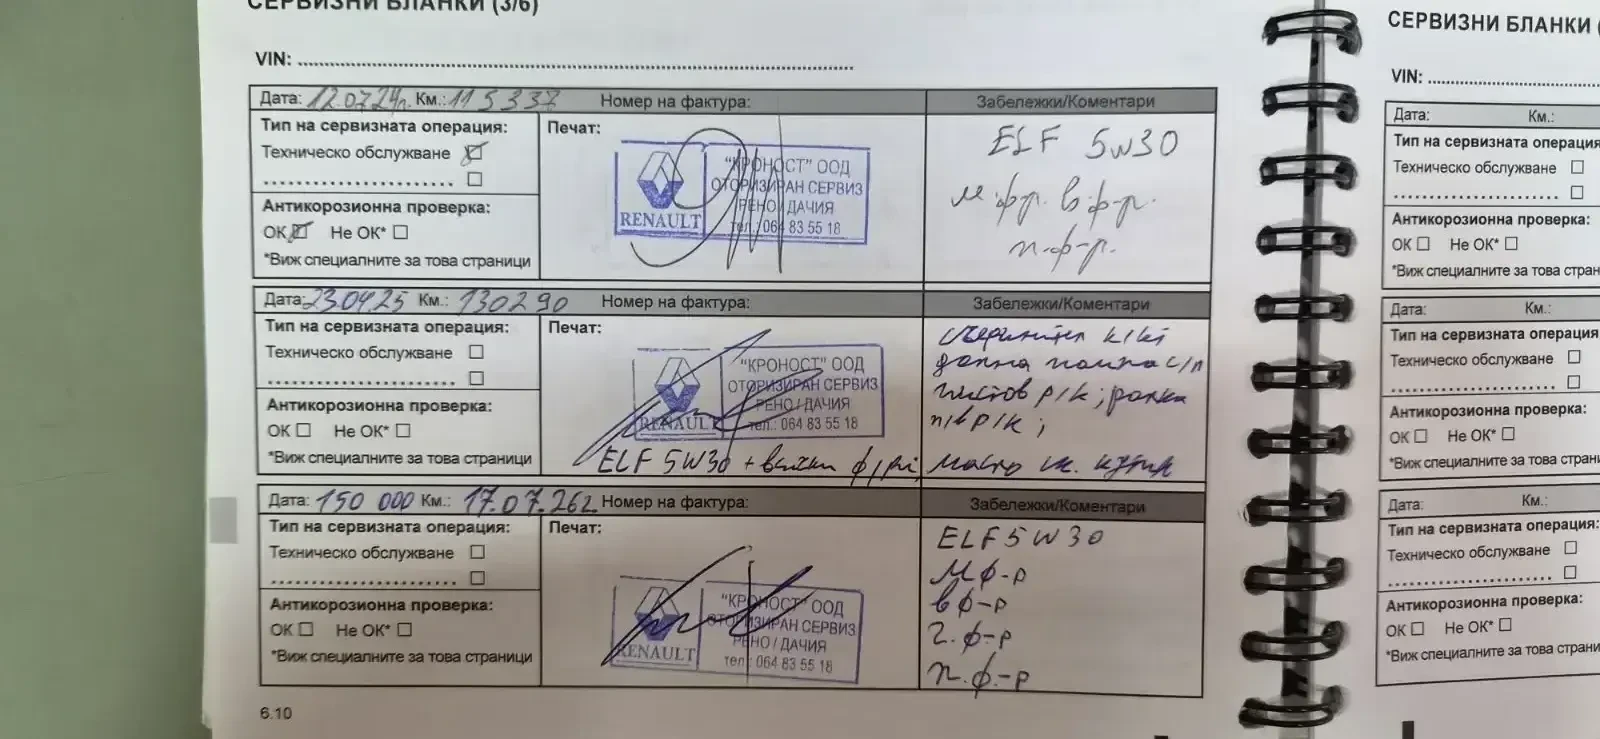 СЕРВИЗНИ БЛАНКИ (3/6)
VIN:
Дата: 12.07.24г. Км.: 115337 Номер на фактура: Забележки/Коментари
Тип на сервизната операция:
Техническо обслужване
Антикорозионна проверка:
ОК Не ОК*
*Виж специалните за това страници
Печат:
RENAULT
"КРОНОСТ" ООД
ОТОРИЗИРАН СЕРВИЗ
РЕНО / ДАЧИЯ
тел.: 064 83 55 18
ELF 5W30
м.ф-р. в.ф-р.
п.ф-р.
Дата: 23.04.25 Км.: 130290 Номер на фактура: Забележки/Коментари
Тип на сервизната операция:
Техническо обслужване
Антикорозионна проверка:
ОК Не ОК*
*Виж специалните за това страници
Печат:
RENAULT
"КРОНОСТ" ООД
ОТОРИЗИРАН СЕРВИЗ
РЕНО / ДАЧИЯ
тел.: 064 83 55 18
ELF 5W30 +
к/кт
р/к ;
р/к ;
масло ск. кутия
Дата: 150 000 Км.: 17.07.26г. Номер на фактура: Забележки/Коментари
Тип на сервизната операция:
Техническо обслужване
Антикорозионна проверка:
ОК Не ОК*
*Виж специалните за това страници
Печат:
RENAULT
"КРОНОСТ" ООД
ОТОРИЗИРАН СЕРВИЗ
РЕНО / ДАЧИЯ
тел.: 064 83 55 18
ELF 5W30
М ф-р
в ф-р
г. ф-р
п. ф.-р
6.10
СЕРВИЗНИ БЛАНКИ (
VIN:
Дата: Км.:
Тип на сервизната операция
Техническо обслужване
Антикорозионна проверка:
ОК Не ОК*
*Виж специалните за това стран
Дата: Км.:
Тип на сервизната операция
Техническо обслужване
Антикорозионна проверка:
ОК Не ОК*
*Виж специалните за това стран
Дата: Км.:
Тип на сервизната операция:
Техническо обслужване
Антикорозионна проверка:
ОК Не ОК*
*Виж специалните за това страни